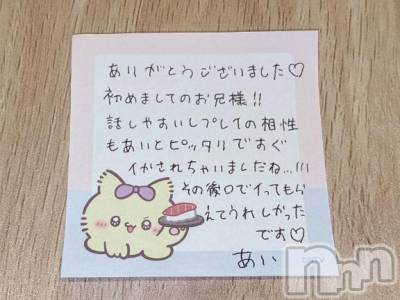 ありがとうございました♡
初めましてのお兄様!!
話しやすいしプレイの相性
もあいとピッタリですぐ
イかされちゃいましたね…!!!
その後口でイってもら
えてうれしかった
です♡
あい